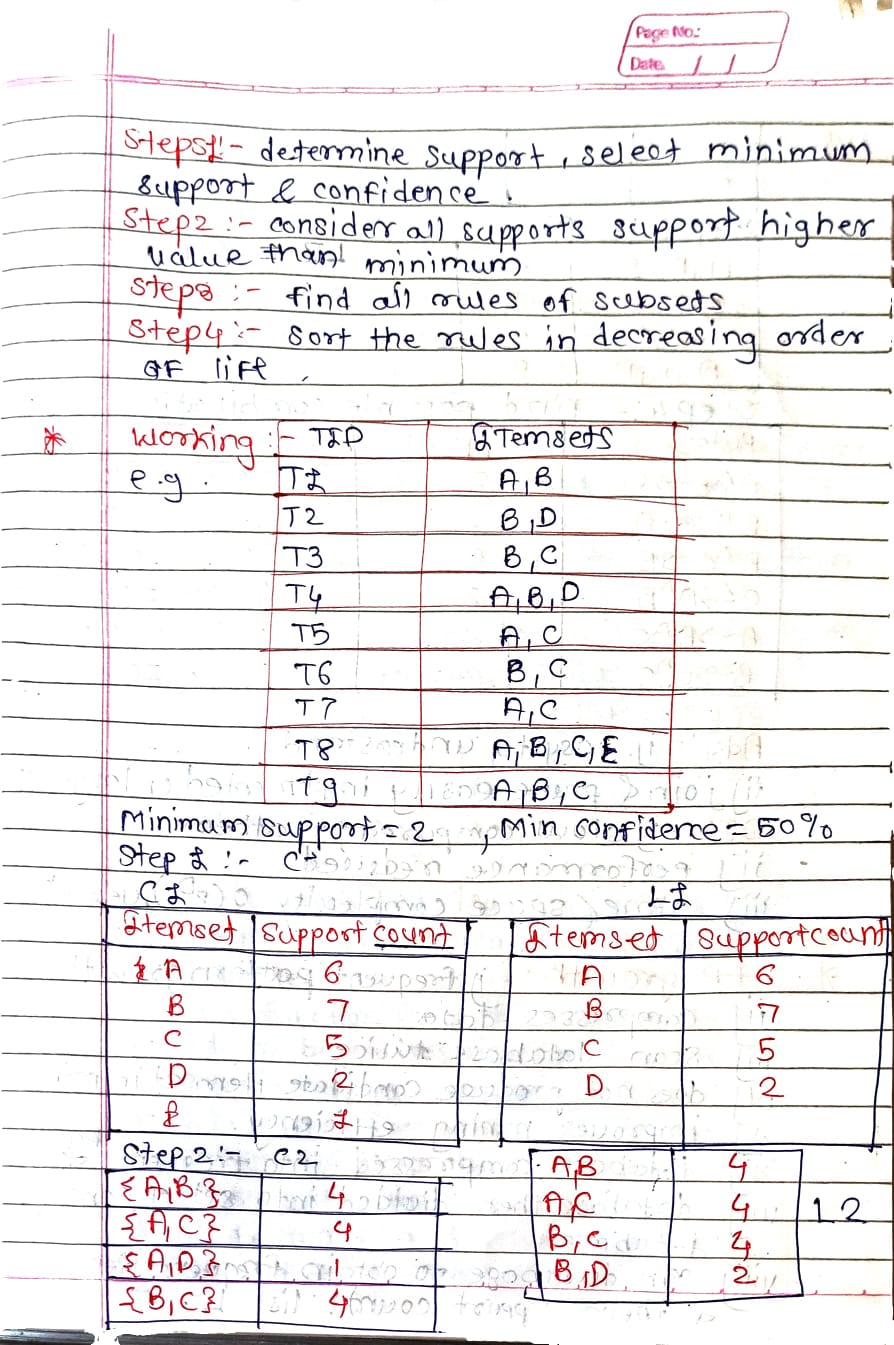 Page No.:
Date / /
Steps1:- determine support, select minimum
support & confidence.
Step2:- consider all supports support higher
value than minimum
Step3:- find all rules of subsets
Step4:- sort the rules in decreasing order
of lift.
* Working:- TID Itemsets
e.g. T1 A,B
T2 B,D
T3 B,C
T4 A,B,D
T5 A,C
T6 B,C
T7 A,C
T8 A,B,C,E
T9 A,B,C
Minimum support = 2, Min confidence = 50%
Step 1:- C1
C1 L1
Itemset Support count Itemset supportcount
A 6 A 6
B 7 B 7
C 5 C 5
D 2 D 2
E 1
Step 2:- C2
A,B 4
{A,B} 4 A,C 4 L2
{A,C} 4 B,C 4
{A,D} 1 B,D 2
{B,C} 4